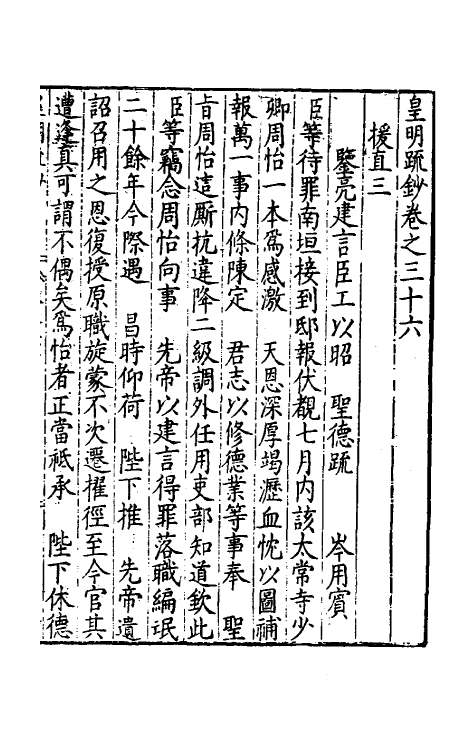 皇明疏鈔卷之三十六
援直三
鑒亮建言臣工以昭 聖德疏 岑用賓
臣等待罪南垣接到邸報伏覩七月內該太常寺少
卿周怡一本爲感激 天恩深厚竭瀝血忱以圖補
報萬一事內條陳定 君志以修德業等事奉 聖
旨周怡這厮抗違降二級調外任用吏部知道欽此
臣等竊念周怡向事 先帝以建言得罪落職編氓
二十餘年今際遇 昌時仰荷 陛下推 先帝遺
詔召用之恩復授原職旋蒙不次遷擢徑至今官其
遭逢真可謂不偶矣爲怡者正當祗承 陛下休德